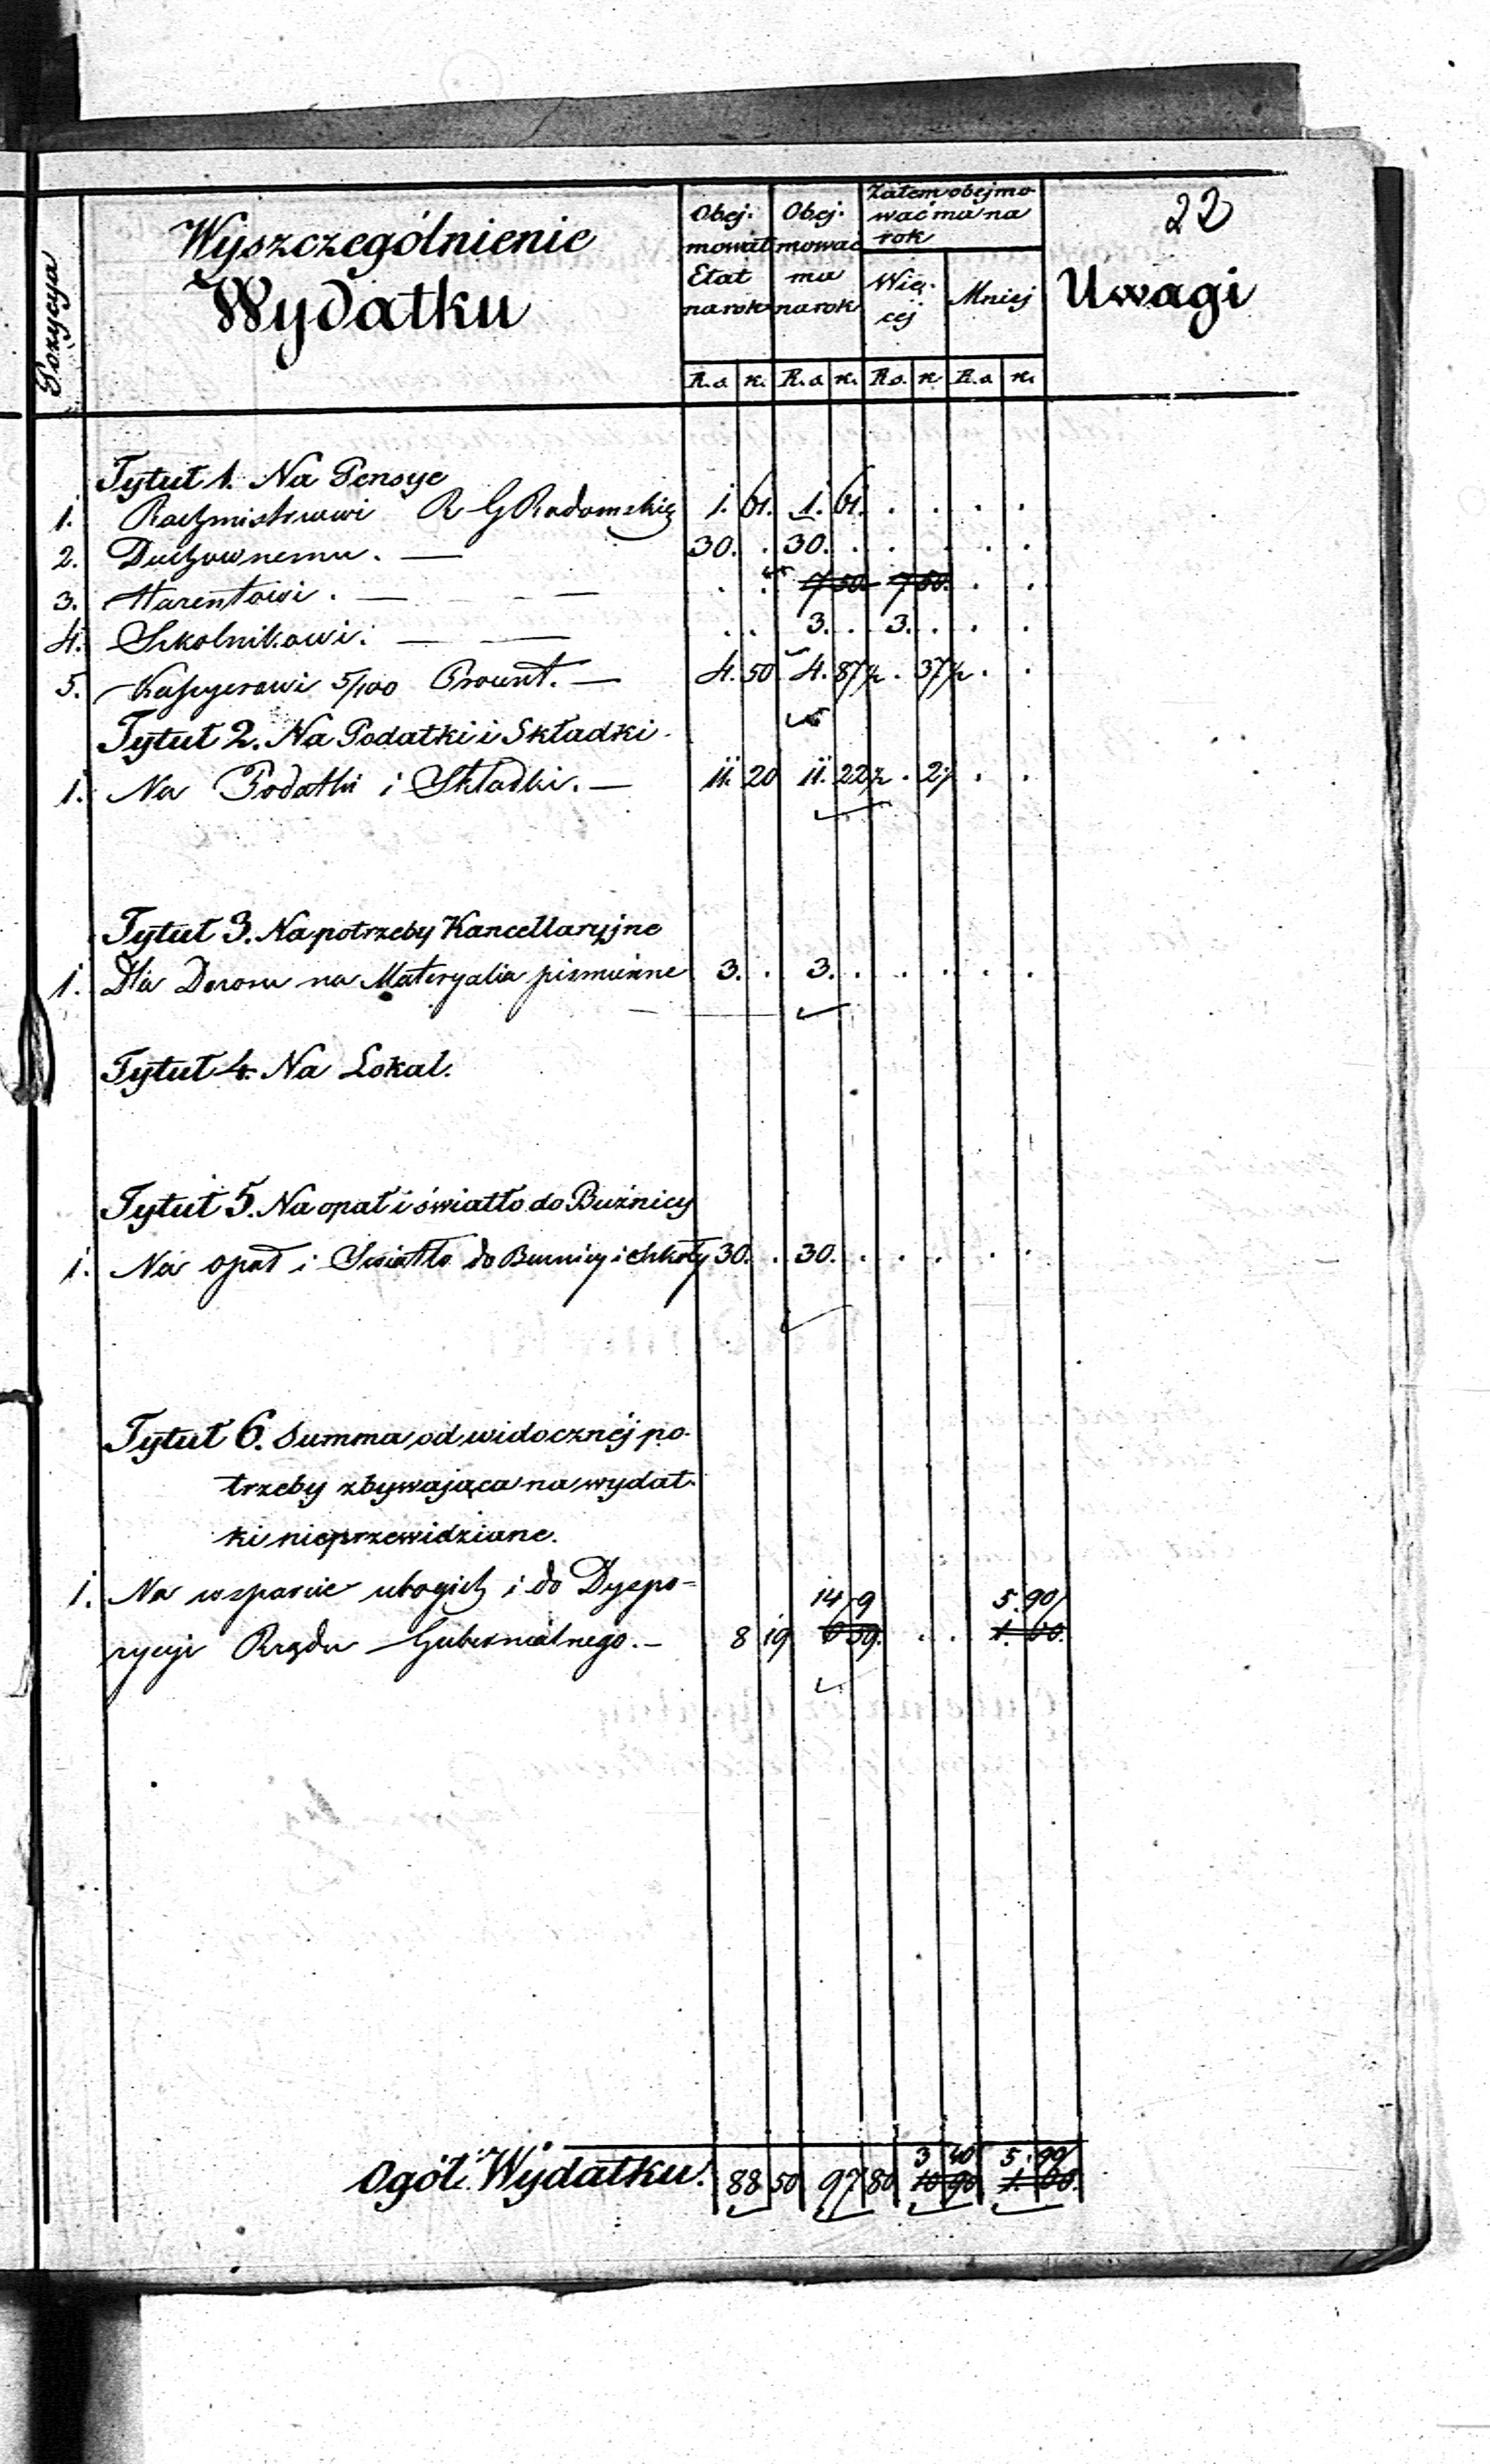 22
Pozycya
Wyszczególnienie
Wydatku
Obej-
mował
Etat
na rok
Obej-
mować
ma
na rok
Zatem obejmo-
wać ma na
rok
Wię-
cej
Mniej
Uwagi
R.s. k. R.s. k. R.s. k. R.s. k.
Tytuł 1. Na Pensye
1. Rachmistrzowi R G Radomskiego 1. 61. 1. 61. . . . .
2. Duchownemu. — 30. . 30. . . . . .
3. . — — — . . 7 50 7 50. . .
4. Szkolnikowi. — — . . 3. . 3. . . .
5. Kassyerowi 5/100 Procent. — 4. 50 4. 87½ . 37½ . .
Tytuł 2. Na Podatki i Składki.
1. Na Podatki i Składki. — 11. 20 11. 22½ . 2½ . .
Tytuł 3. Na potrzeby Kancellaryjne
1. Dla Dozoru na Materyalia piśmienne 3. . 3. . . . . .
Tytuł 4. Na Lokal.
Tytuł 5. Na opał i światło do Bużnicy
1. Na opał i Swiatło do Buznicy i Szkoły 30. . 30. . . . . .
Tytuł 6. Summa od widocznéj po-
trzeby zbywająca na wydat-
ki nieprzewidziane.
1. Na wsparcie ubogich i do Dyspo-
14 9 5. 90
zycyi Rządu Gubernialnego. — 8 19 6 59. . . 1. 60.
3 40 5. 90
Ogół Wydatku. 88 50 97 80 10 90 1. 60.